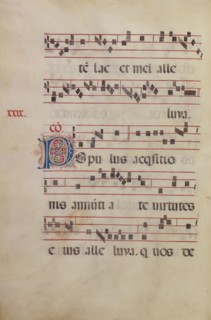 té lac et mel alle
luya.
xxx.
co
Popu lus acq̄sitio
nis annūti a te virtutes
e ius alle luya. q uos de